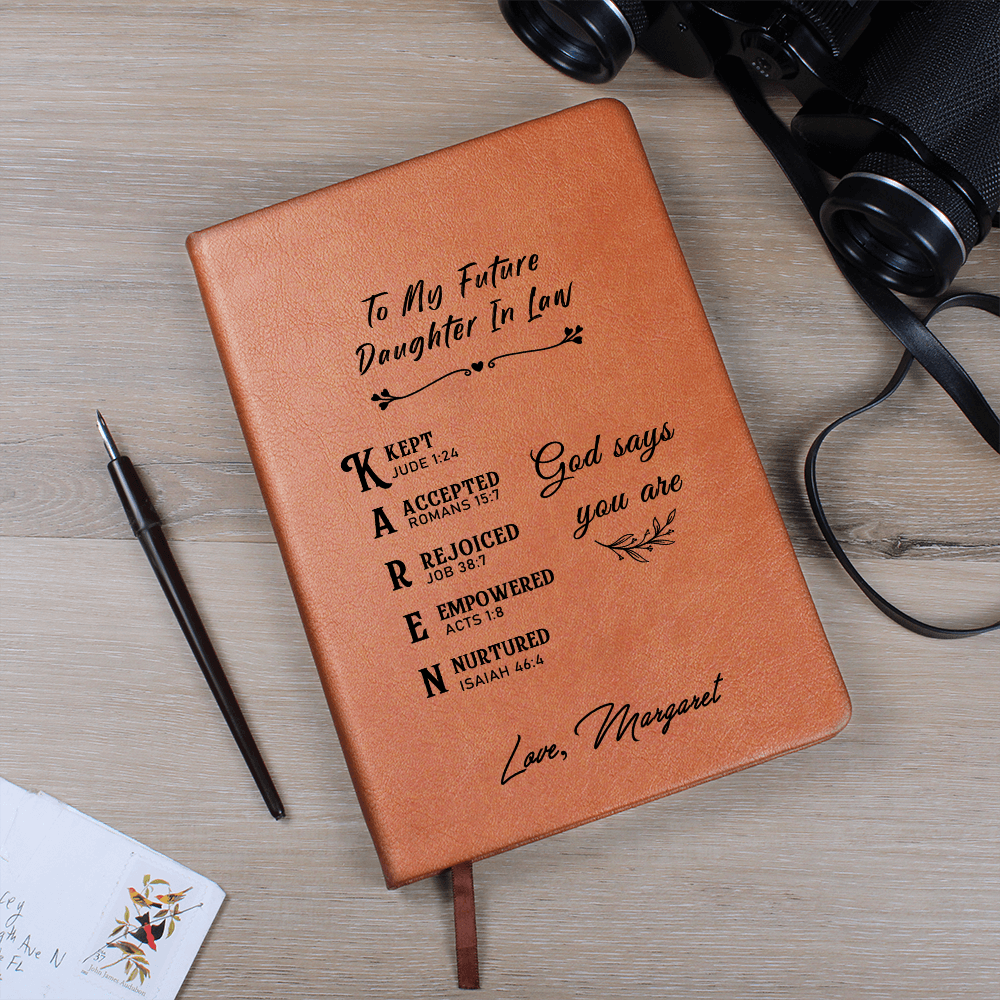 To My Future
Daughter In Law
K KEPT
JUDE 1:24
A ACCEPTED
ROMANS 15:7
R REJOICED
JOB 38:7
E EMPOWERED
ACTS 1:8
N NURTURED
ISAIAH 46:4
God says
you are
Love, Margaret
cey
Ave N
FL
37
John James Audubon